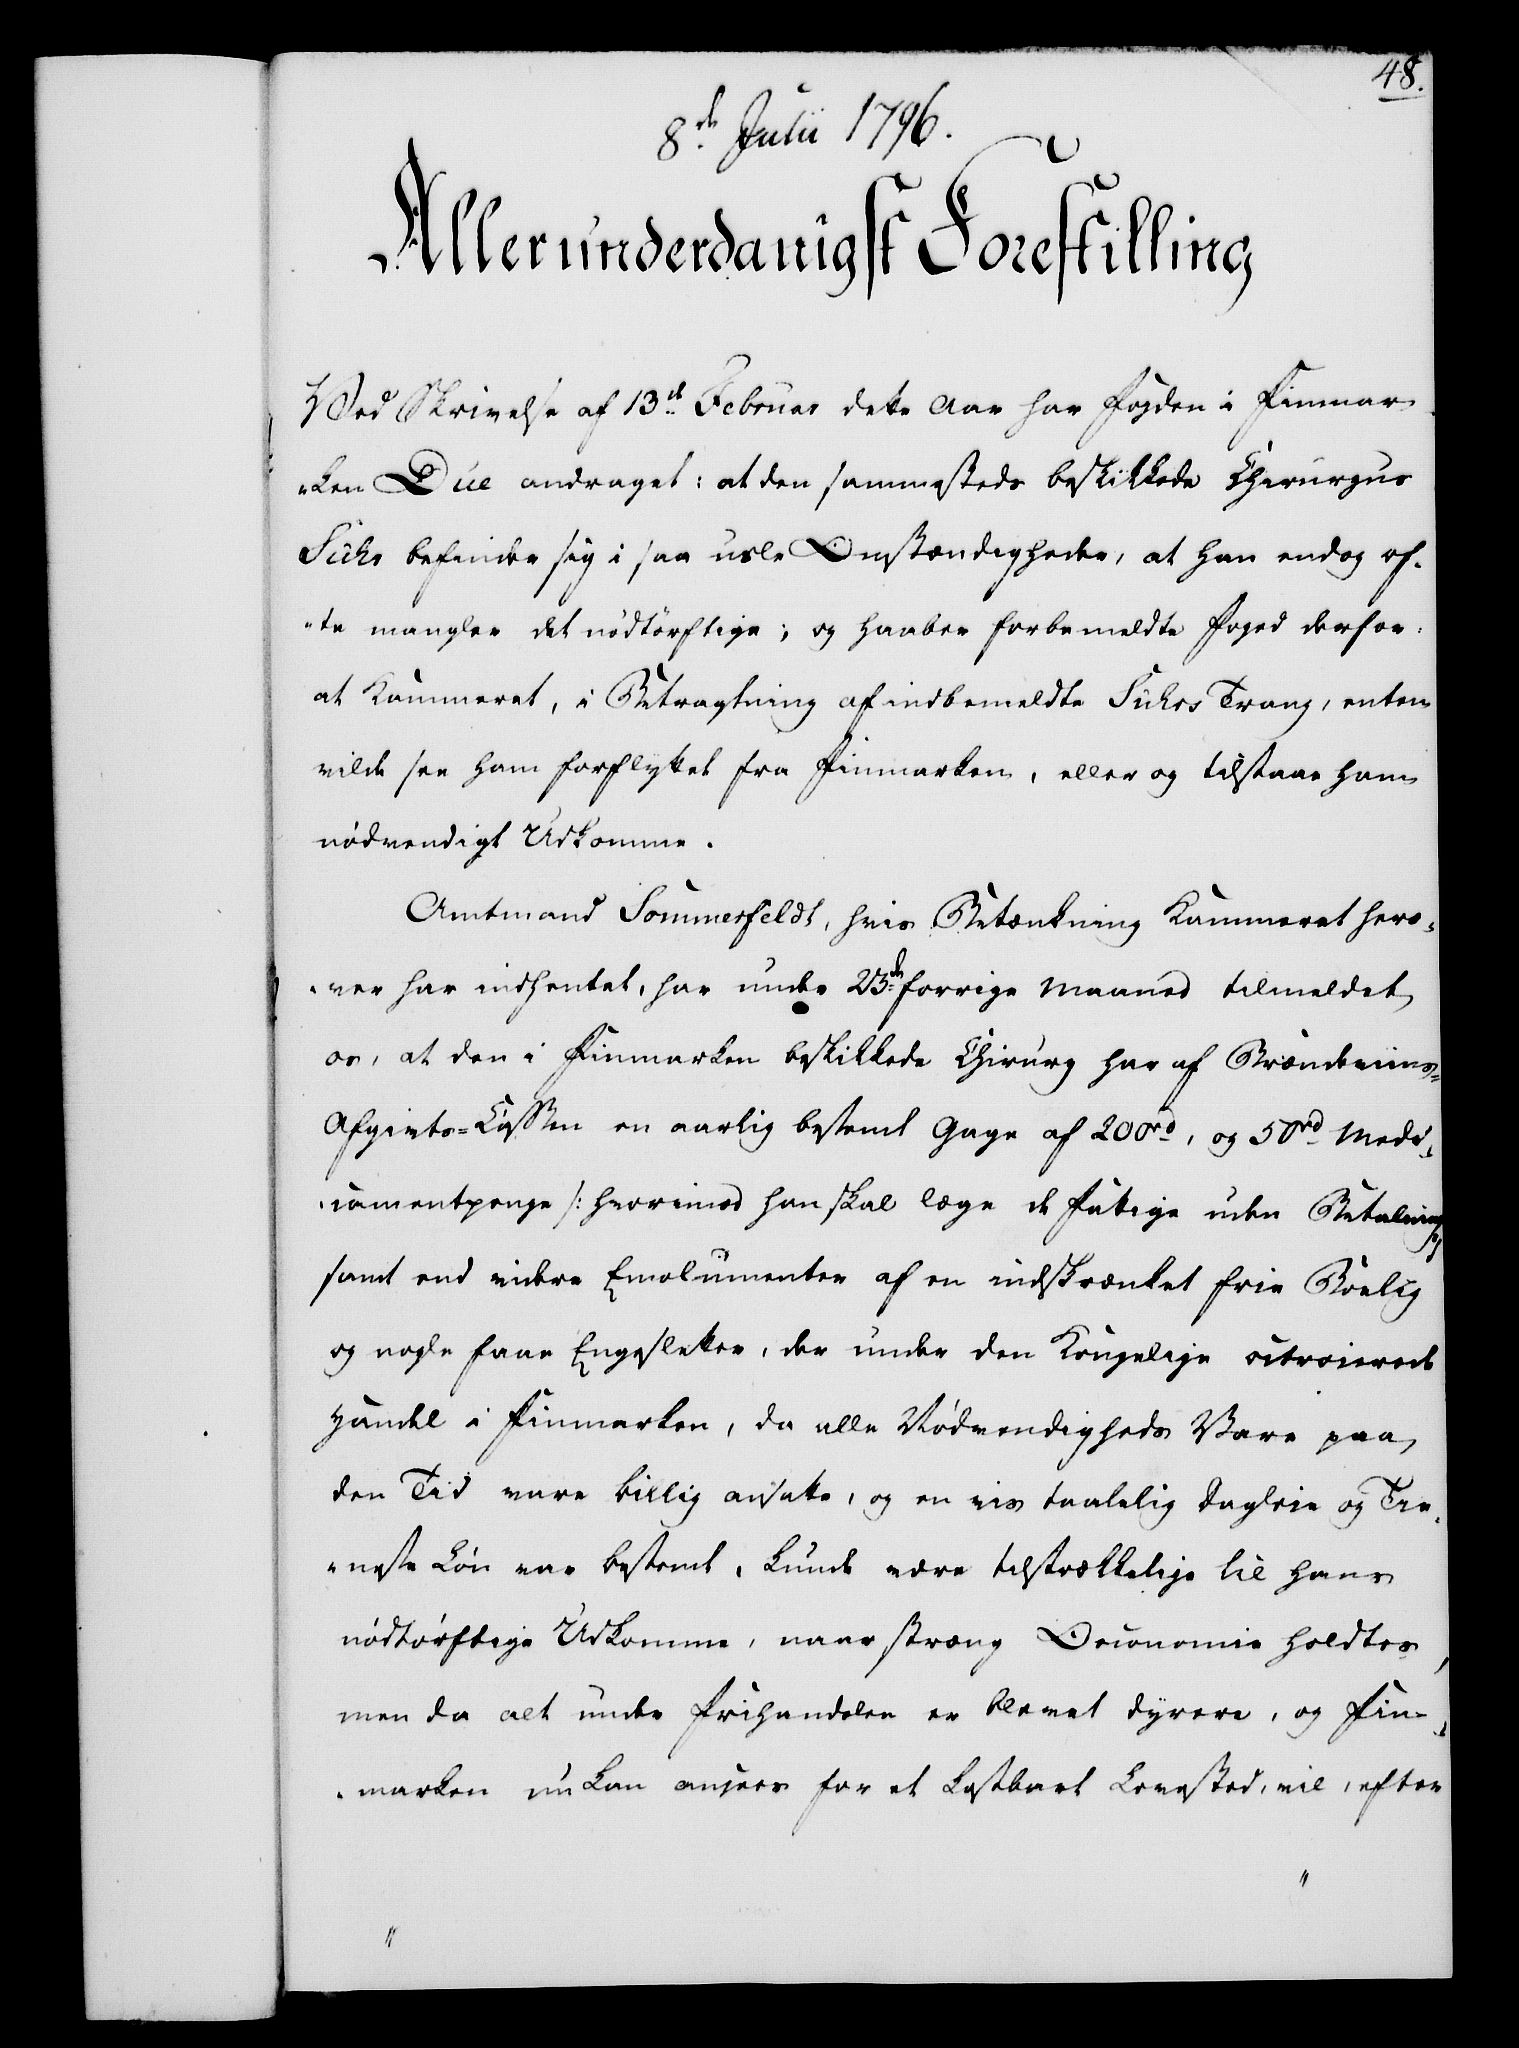 48.
8de Julii 1796.
Allerunderdanigst Forestilling
Ved Skrivelse af 13de Februar dette Aar har Fogden i Finmar¬
„ken Düe andraget: at den sammesteds beskikkede Chirurgus
Suhr befinder sig i saa usle Omstændigheder, at han endog of¬
„te mangler det nödtörftige; og haaber forbemeldte Foged derfor:
at Kammeret, i Betragtning af indbemeldte Suhrs Trang, enten
vilde see ham forflyttet fra Finmarken, eller og tilstaae ham
nödvendigt Udkomme.
Amtmand Sommerfeldt, hvis Betænkning Kammeret hero¬
„ver har indhentet, har under 23de forrige Maaned tilmeldet
os, at den i Finmarken beskikkede Chirurg har af Brændeviins=
Afgivts=Cassen en aarlig bestemt Gage af 200rd, og 50rd Medi¬
„camentpenge /: hvorimod han skal læge de Fattige uden Betaling :/
samt end videre Emolumenter af en indskrænket frie Boelig
og nogle faae Engesletter, der under den Kongelige octroierede
Handel i Finmarken, da alle Nödvendigheds Vare paa
den Tid vare billig ansatte, og en vis taalelig Dagleie og Tie¬
„neste Lön var bestemt, kunde være tilstrækkelige til hans
nödtörftige Udkomme, naar stræng Oeconomie holdtes,
men da alt under Frihandelen er blevet dyrere, og Fin¬
„marken nu kan ansees for et kostbart Levested, vil, efter